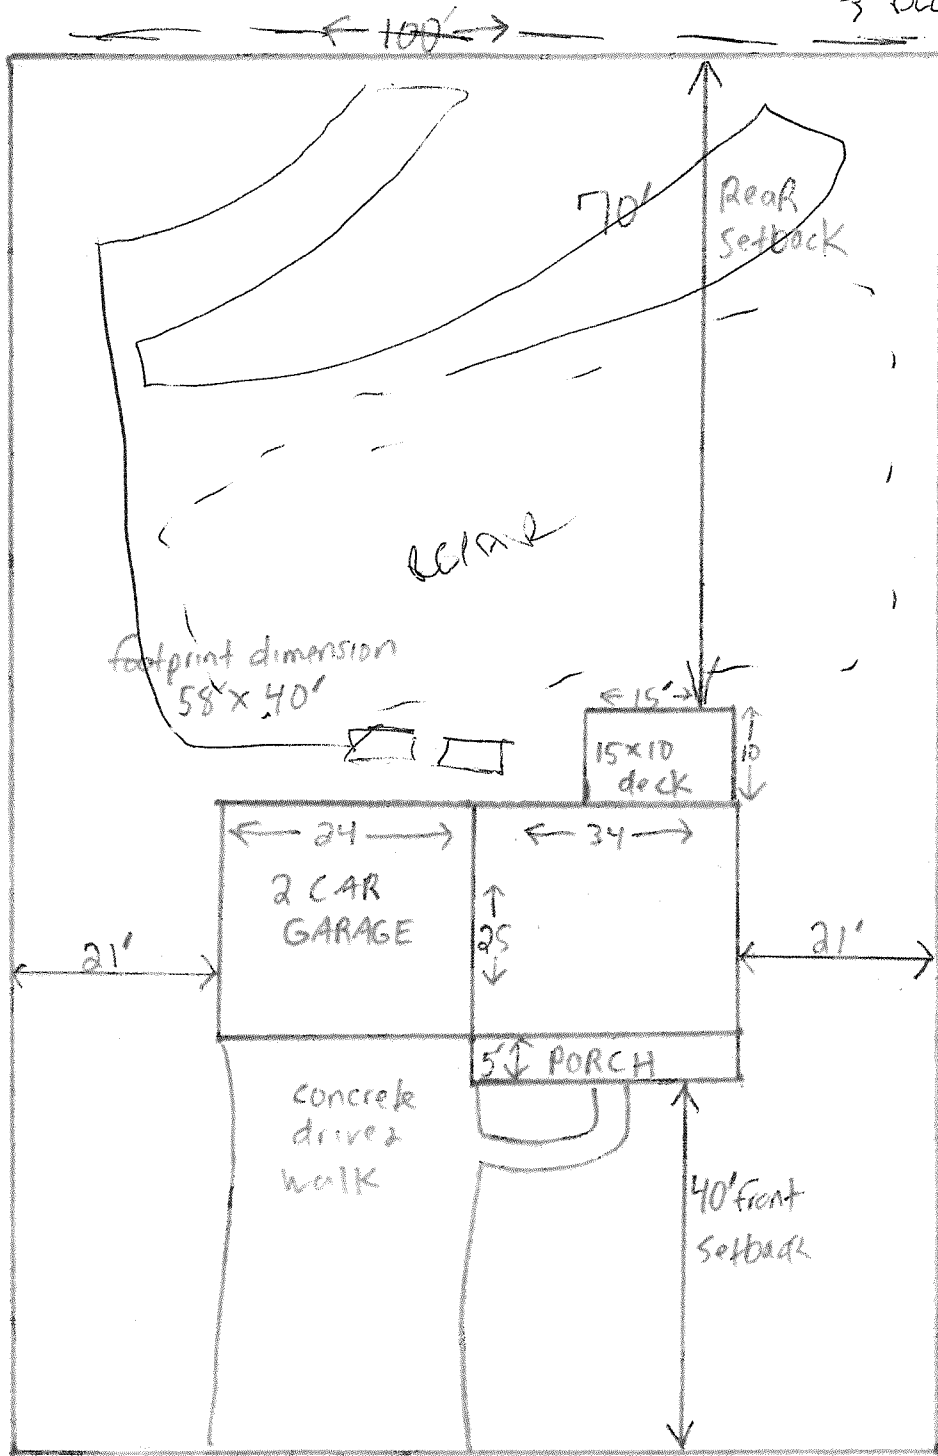 100'
70'
Rear
setback
REPAIR
footprint dimension
58' x 40'
15'
15x10
deck
10
24
34
2 CAR
GARAGE
25
21'
21'
5' PORCH
concrete
drive &
walk
40' front
setback